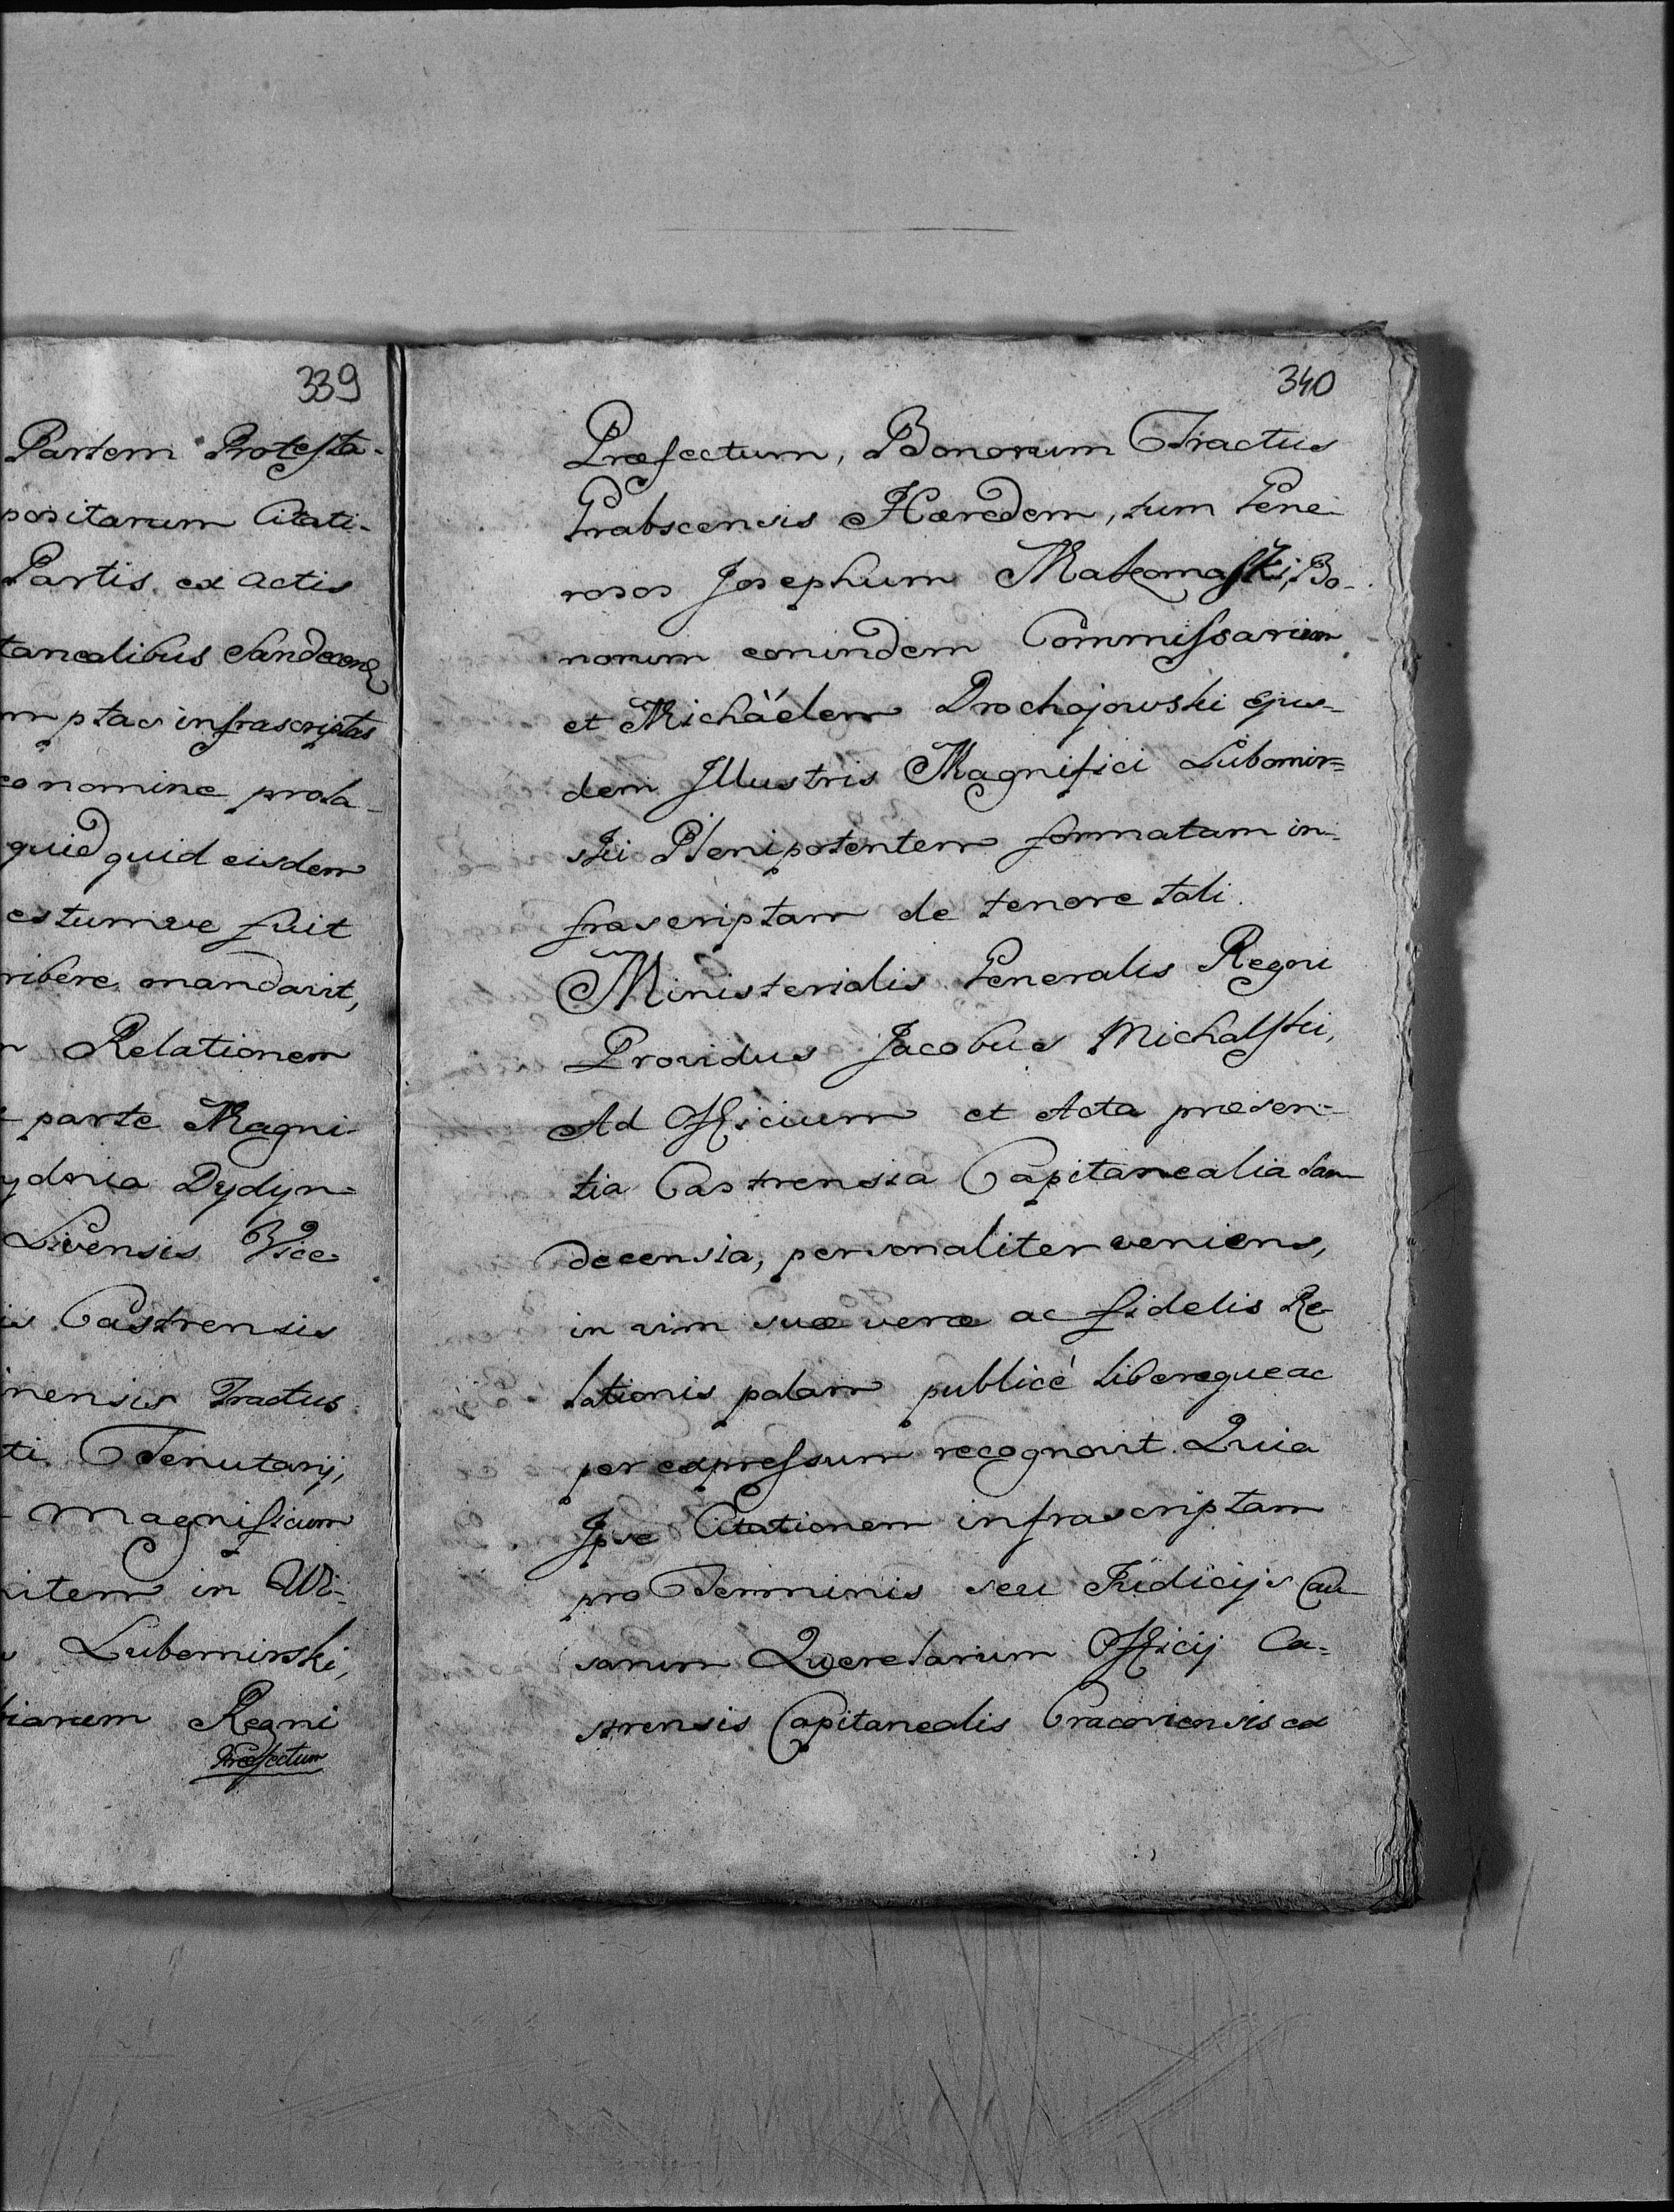 339
Partem Protesta-
positarum Citati-
Partis ex Actis
tanealibus Sandecen
mptas infrascriptas
eo nomine prola-
quid quid eisdem
estumve fuit
ribere mandavit,
Relationem
parte Magni-
ydonia Dydyn-
Livensis Vice
is Castrensis
nensis Tractus
ti Tenutarij,
Magnificum
item in Wi-
Lubomirski,
tiarum Regni
Præfectum
340
Præfectum, Bonorum Tractus
Grabscensis Hæredem, tum Gene-
rosos Josephum Bo-
norum eorundem Commissarium
et Michäelem Drochojowski ejus-
dem Illustris Magnifici Lubomir=
ski Plenipotentem formatam in-
frascriptam de tenore tali.
Ministerialis Generalis Regni
Providus Jacobus Michalski,
Ad Officium et Acta præsen-
tia Castrensia Capitanealia San
decensia, personaliter veniens,
in vim suæ veræ ac fidelis Re
lationis palam publicè libereque ac
per expressum recognovit. Quia
Ipse Citationem infrascriptam
pro Terminis seu Judicijs Cau
sarum Querelarum Officij Ca=
strensis Capitanealis Cracoviensis ex